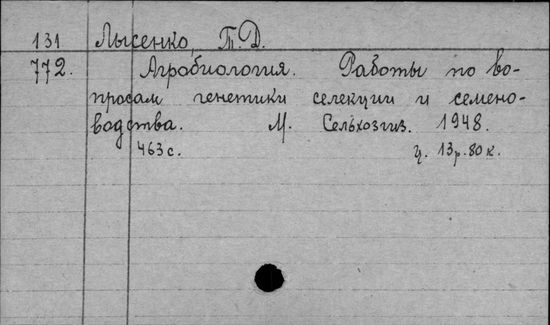 131 Лысенко, Т.Д.
772. Агробиология. Работы по во-
просам генетики селекции и семено-
водства. М. Сельхозгиз. 1948.
463 с. ц. 13р.80к.